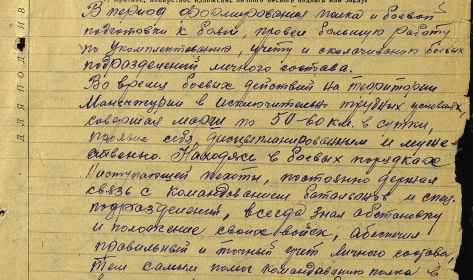 В период формирования полка и боевой
подготовки к боям, провел большую работу
по укомплектованию, учету и сколачиванию боевых
подразделений личного состава.
Во время боевых действий на территории
Манчжурии в исключительно трудных условиях,
совершая марш по 50-60 км. в сутки,
проявил себя дисциплинированным и муже-
ственно. Находясь в боевых порядках
наступающей пехоты, постоянно держал
связь с командованием баталионов и спец.
подразделений, всегда знал обстановку
и положение своих войск, обеспечил
правильный и точный учет личного состава,
тем самым помог командованию полка в
ДЛЯ ПОД ШИВ